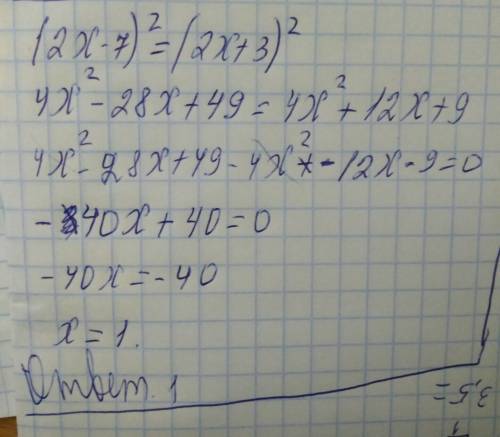 (2x-7)² = (2x+3)²
4x² - 28x + 49 = 4x² + 12x + 9
4x² - 28x + 49 - 4x² - 12x - 9 = 0
-40x + 40 = 0
-40x = -40
x = 1.
Ответ. 1
3,5=
1